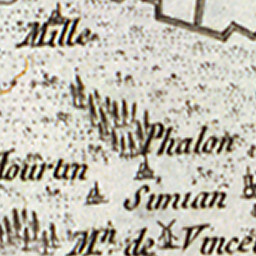 Mille
Phalon
Tourtin
Simian
Mⁿ de Vince